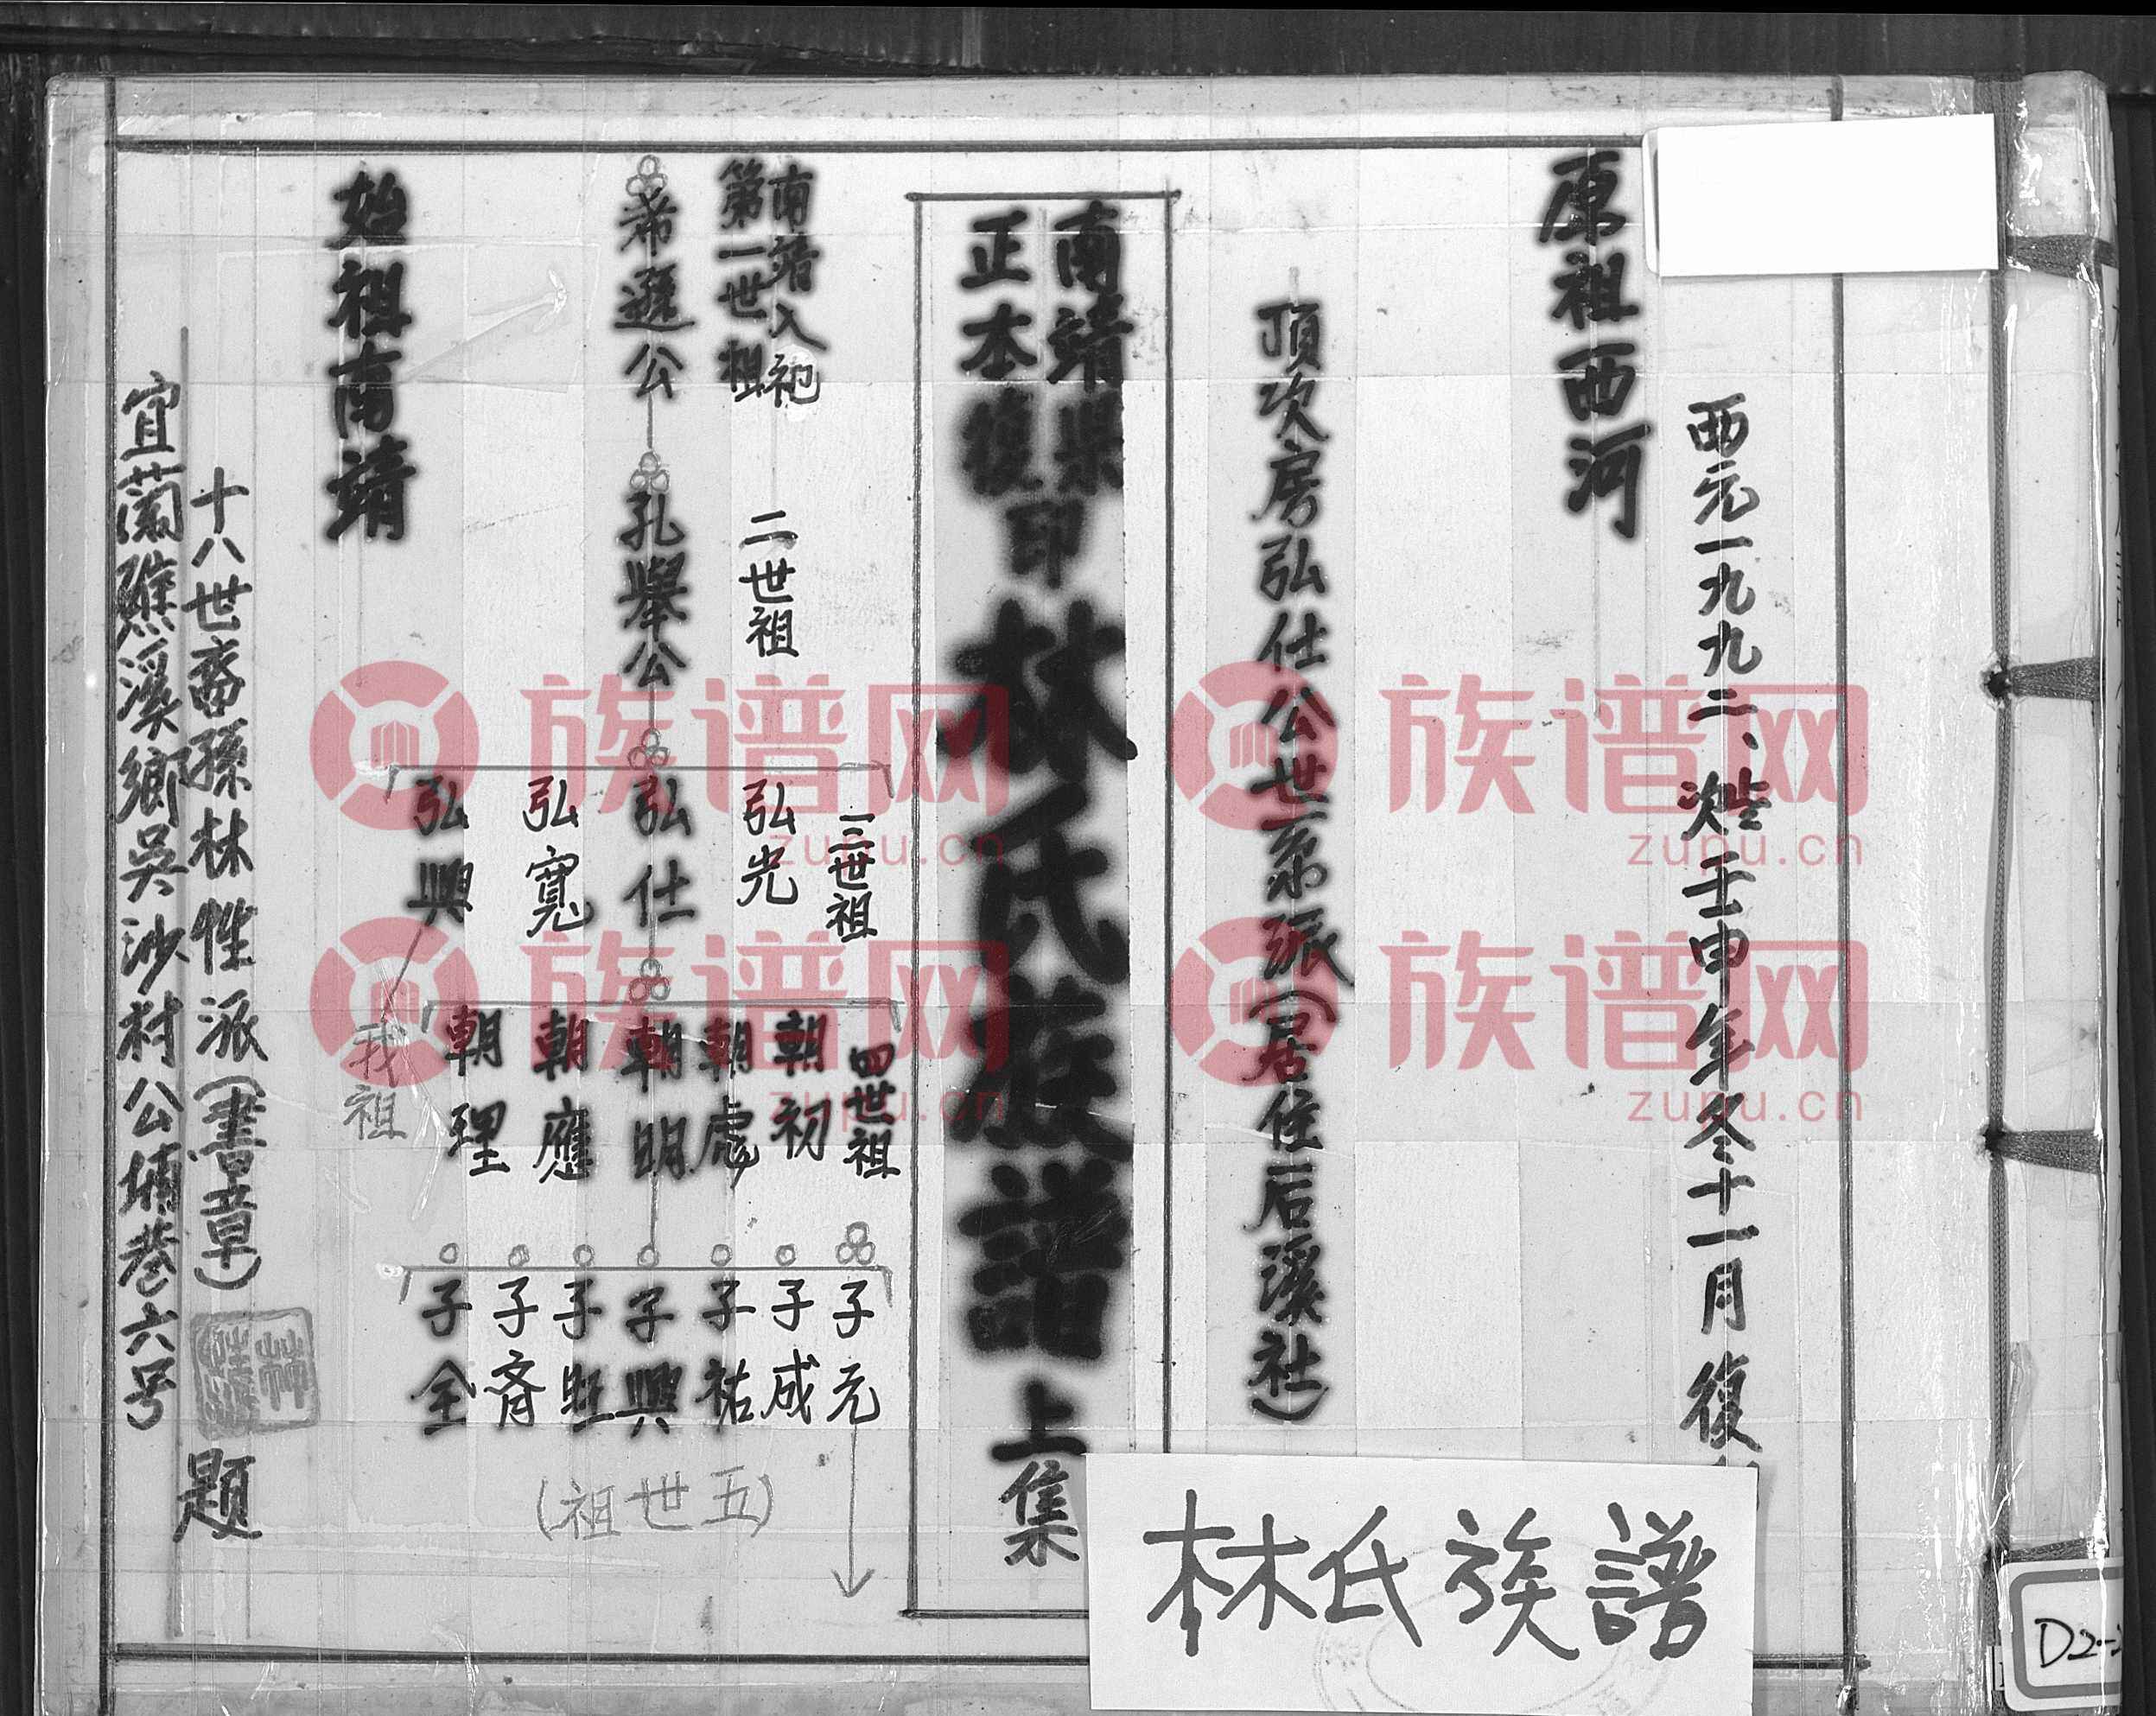 西元一九九二、歲次壬申年冬十一月復
原祖西河
頂次房弘仕公世系派(居住后溪社)
南靖縣
正本復印
林氏族譜
上集
南靖入祀
第一世祖
希遜公
二世祖
孔舉公
三世祖
弘光
弘仕
弘寬
弘興
四世祖
朝初
朝處
朝明
朝應
朝理
我祖
子元
子成
子祐
子興
子旺
子齊
子全
(五世祖)
始祖南靖
十八世裔孫林性派(書章)
題
宜蘭礁溪鄉吳沙村公埔巷六号
林氏族譜
D2-
族谱网
zupu.cn
族谱网
zupu.cn
族谱网
zupu.cn
族谱网
zupu.cn